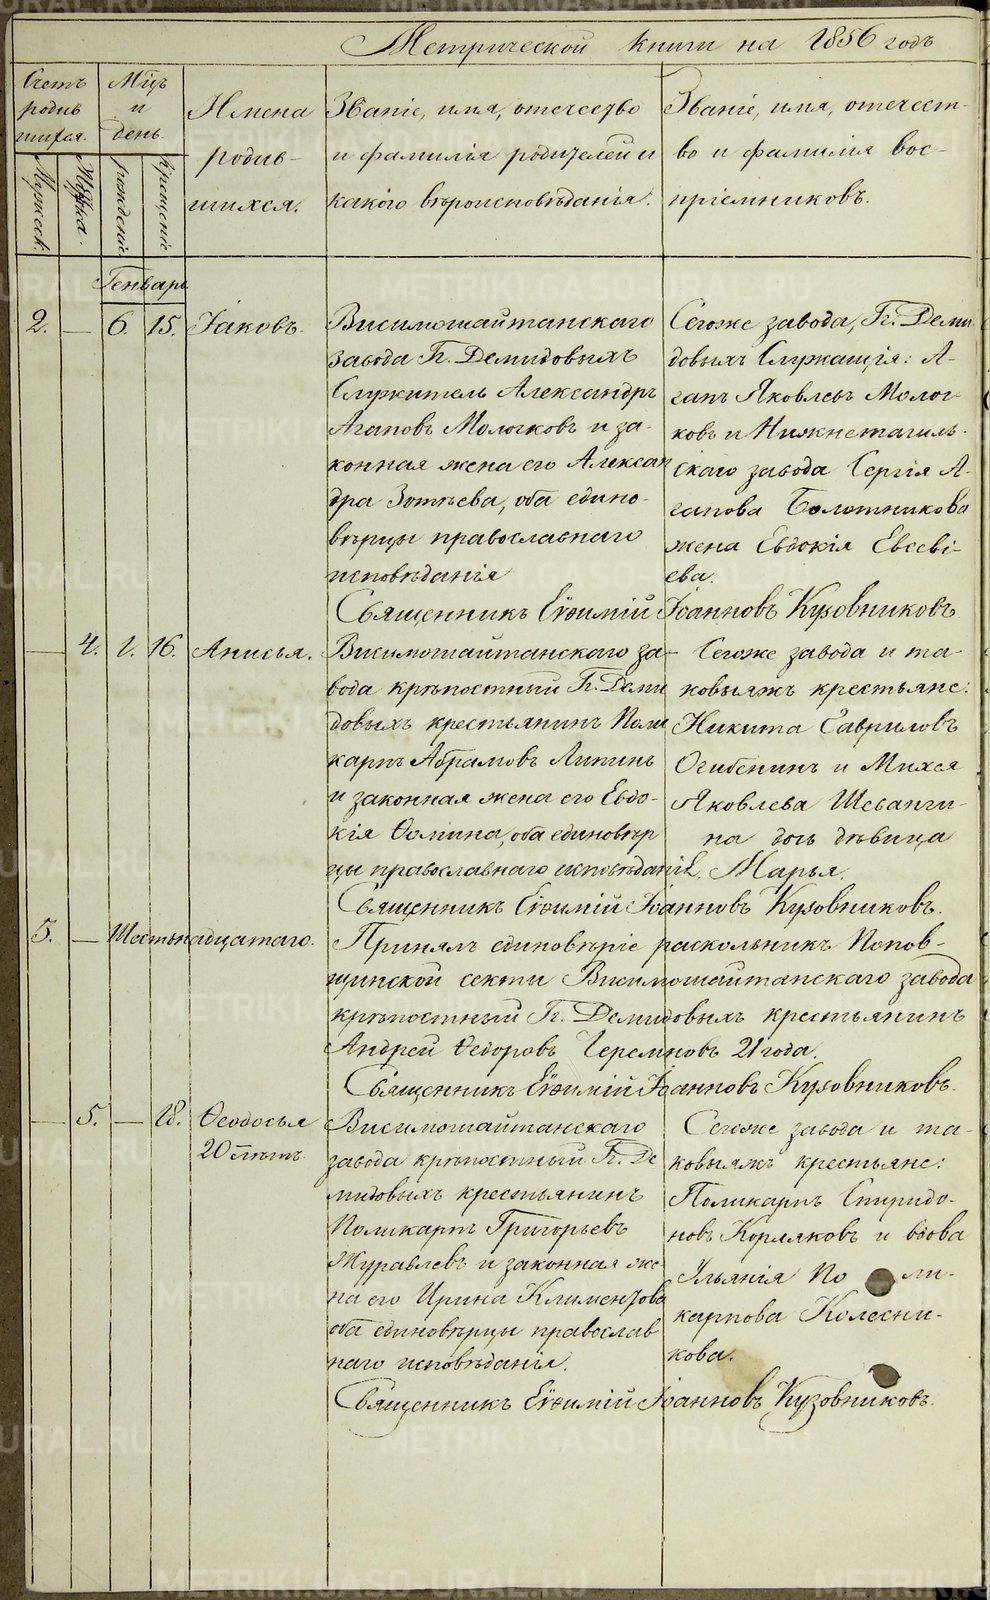 Метрической книги на 1856 годъ
Счетъ родив шихся.
Мужеск.
Мцъ и день.
рожденіе
крещеніе
Имена родив- шихся.
Званіе, имя, отечество
и фамилія родителей и
какого вѣроисповѣданія.
Званіе, имя, отечест-
во и фамилія вос-
пріемниковъ.
Генварь
2. — 6. 15. Іаковъ.
Висимошайтанскаго
завода Гг. Демидовыхъ
Служитель Александръ
Агаповъ Молочковъ и за-
конная жена его Алексан
дра Зотѣева, оба едино-
вѣрцы православнаго
исповѣданія
Сегоже завода, Гг. Деми
довыхъ Служащія: А-
гапъ Яковлевъ Молоч-
ковъ и Нижнетагиль-
скаго завода Сергія А-
гапова Болотникова
жена Евдокія Евсеві-
ева.
Священникъ Еѵѳимій Іоанновъ Кузовниковъ
— 4. 2. 16. Анисья.
Висимошайтанскаго за-
вода крѣпостный Гг. Деми
довыхъ крестьянинъ Поли
карпъ Абрамовъ Липинъ
и законная жена его Евдо-
кія Ѳомина, оба единовѣр
цы православнаго исповѣданія.
Сегоже завода и та-
ковыяжъ крестьяне:
Никита Гавриловъ
Огибенинъ и Михея
Яковлева Шевенги-
на дочь дѣвица
Марья.
Священникъ Еѵѳимій Іоанновъ Кузовниковъ.
5. — Шестьнадцатаго.
Принялъ единовѣріе раскольникъ Попов-
щинской секты Висимошайтанскаго завода
крѣпостный Гг. Демидовыхъ крестьянинъ
Андрей Ѳедоровъ Черемновъ 21 года.
Священникъ Еѵѳимій Іоанновъ Кузовниковъ.
— 5. — 18. Ѳеодосья
20 лѣтъ.
Висимошайтанскаго
завода крѣпостный Гг. Де
мидовыхъ крестьянинъ
Поликарпъ Григорьевъ
Журавлевъ и законная же
на его Ирина Климентова
оба единовѣрцы православ
наго исповѣданія.
Сегоже завода и та-
ковыяжъ крестьяне:
Поликарпъ Спиридо-
новъ Корляковъ и вдова
Ульянія По ли-
карпова Колесни-
кова.
Священникъ Еѵѳимій Іоанновъ Кузовниковъ.
METRIKI.GASO-URAL.RU